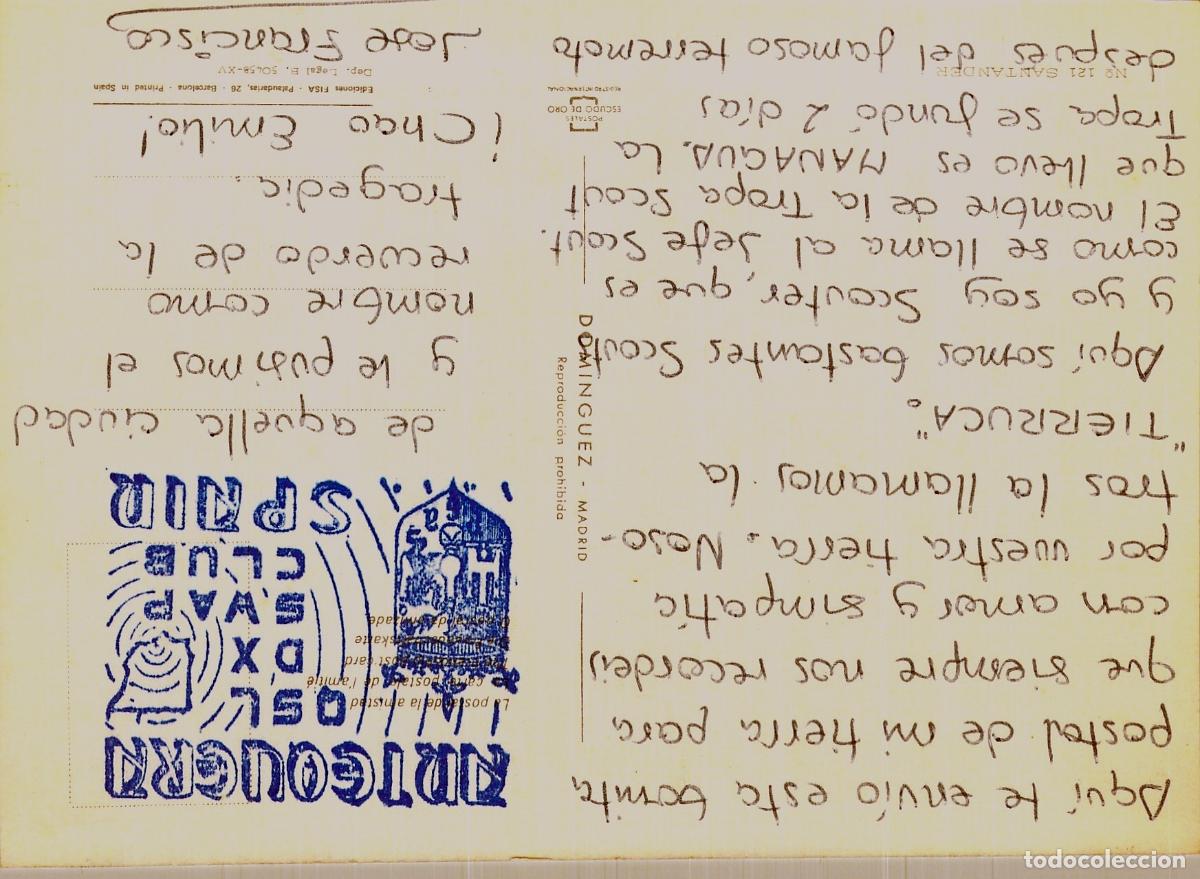 Aquí te envío esta bonita
postal de mi tierra para
que siempre nos recordeis
con amor y simpatía
por vuestra tierra. Noso-
tros la llamamos la
"TIERRUCA".
Aquí somos bastantes Scouts
y yo soy Scouter, que es
como se llama al Jefe Scout.
El nombre de la Tropa Scout
que llevo es MANAGUA. La
Tropa se fundó 2 días
después del famoso terremoto
Nº 121 SANTANDER
POSTALES
ESCUDO DE ORO
REGISTRO INTERNACIONAL
DOMINGUEZ - MADRID
Reproducción prohibida
ARTEQUERA
QSL
DX
SWAP
CLUB
SPAIN
La postal de la amistad
La carte postale de l'amitié
de aquella ciudad
y le pusimos el
nombre como
recuerdo de la
tragedia.
¡Chao Emilio!
Ediciones FISA - Palaudarias, 26 - Barcelona - Printed in Spain
Dep. Legal B. 501.58-XV
Jose Francisco
todocoleccion